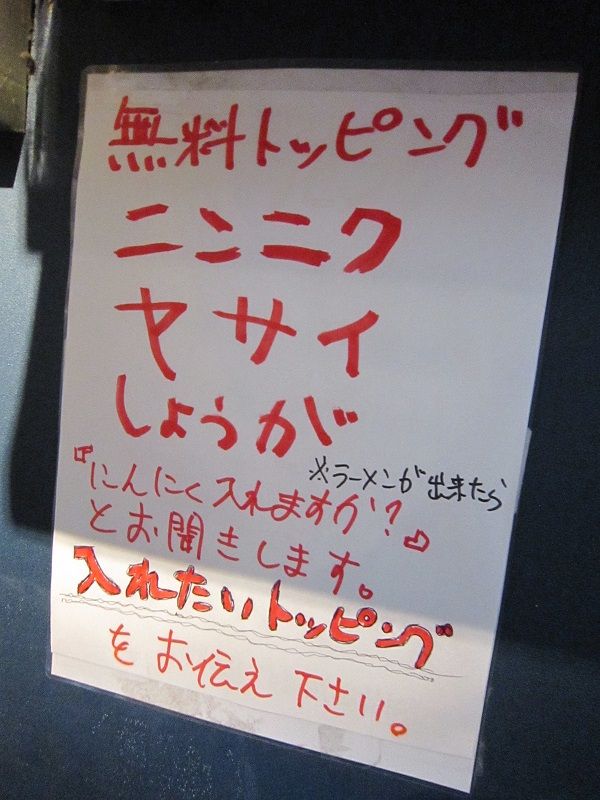 無料トッピング
ニンニク
ヤサイ
しょうが
※ラーメンが出来たら
『にんにく入れますか?』
とお聞きします。
入れたいトッピング
をお伝え下さい。